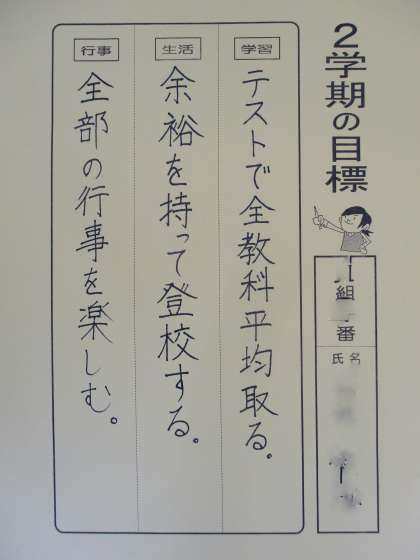 2学期の目標
組 番
氏名
学習
テストで全教科平均取る。
生活
余裕を持って登校する。
行事
全部の行事を楽しむ。